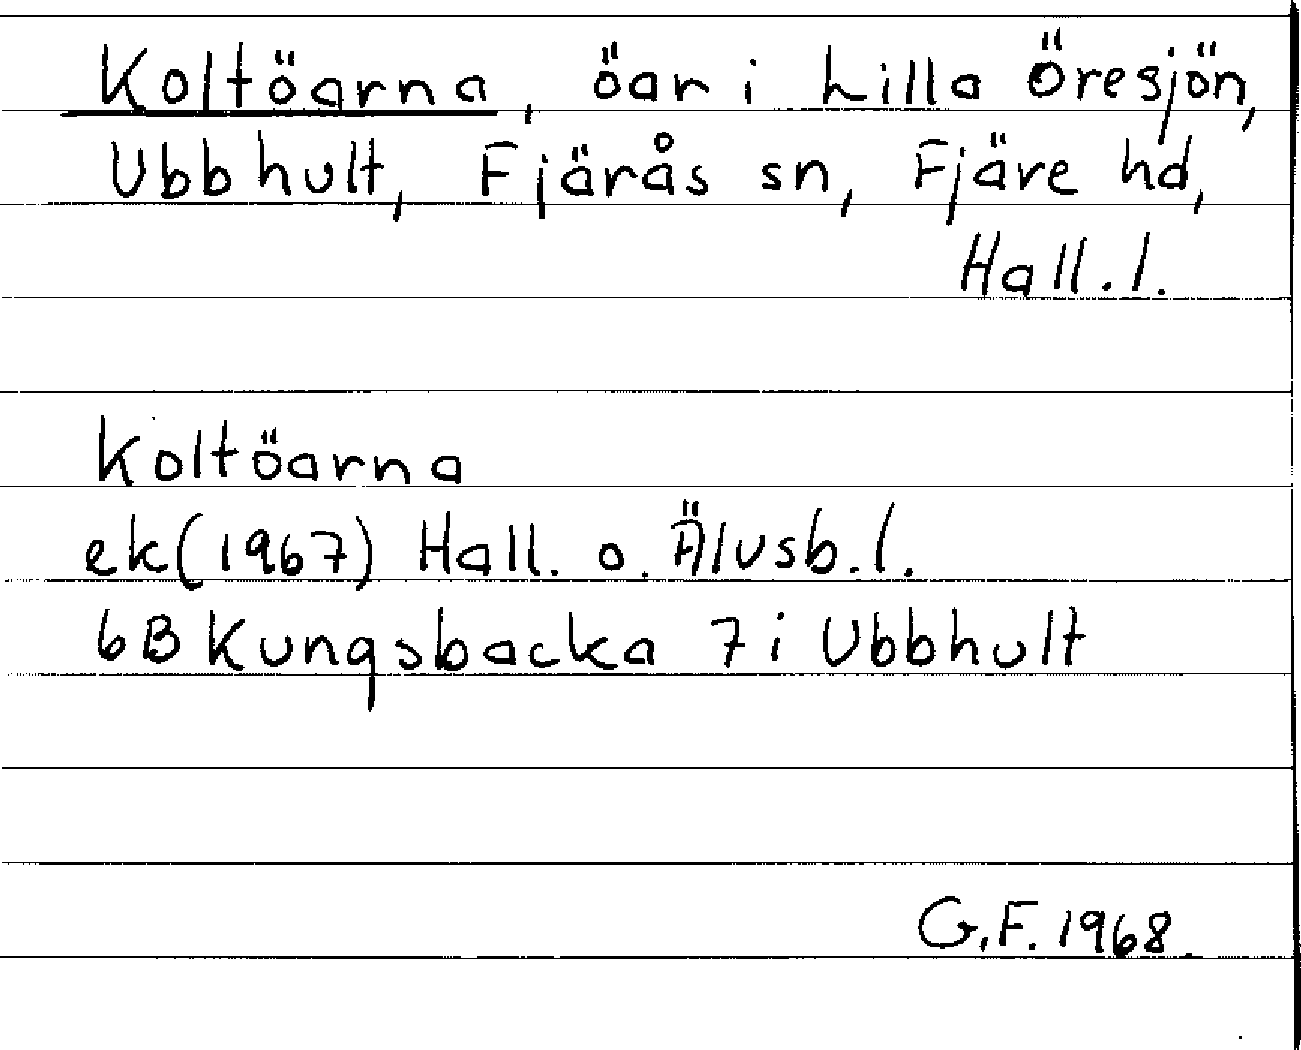 Koltöarna, öar i Lilla Öresjön,
Ubbhult, Fjärås sn, Fjäre hd,
Hall. l.
Koltöarna
ek (1967) Hall. o. Älvsb. l.
6B Kungsbacka 7i Ubbhult
G.F. 1968.